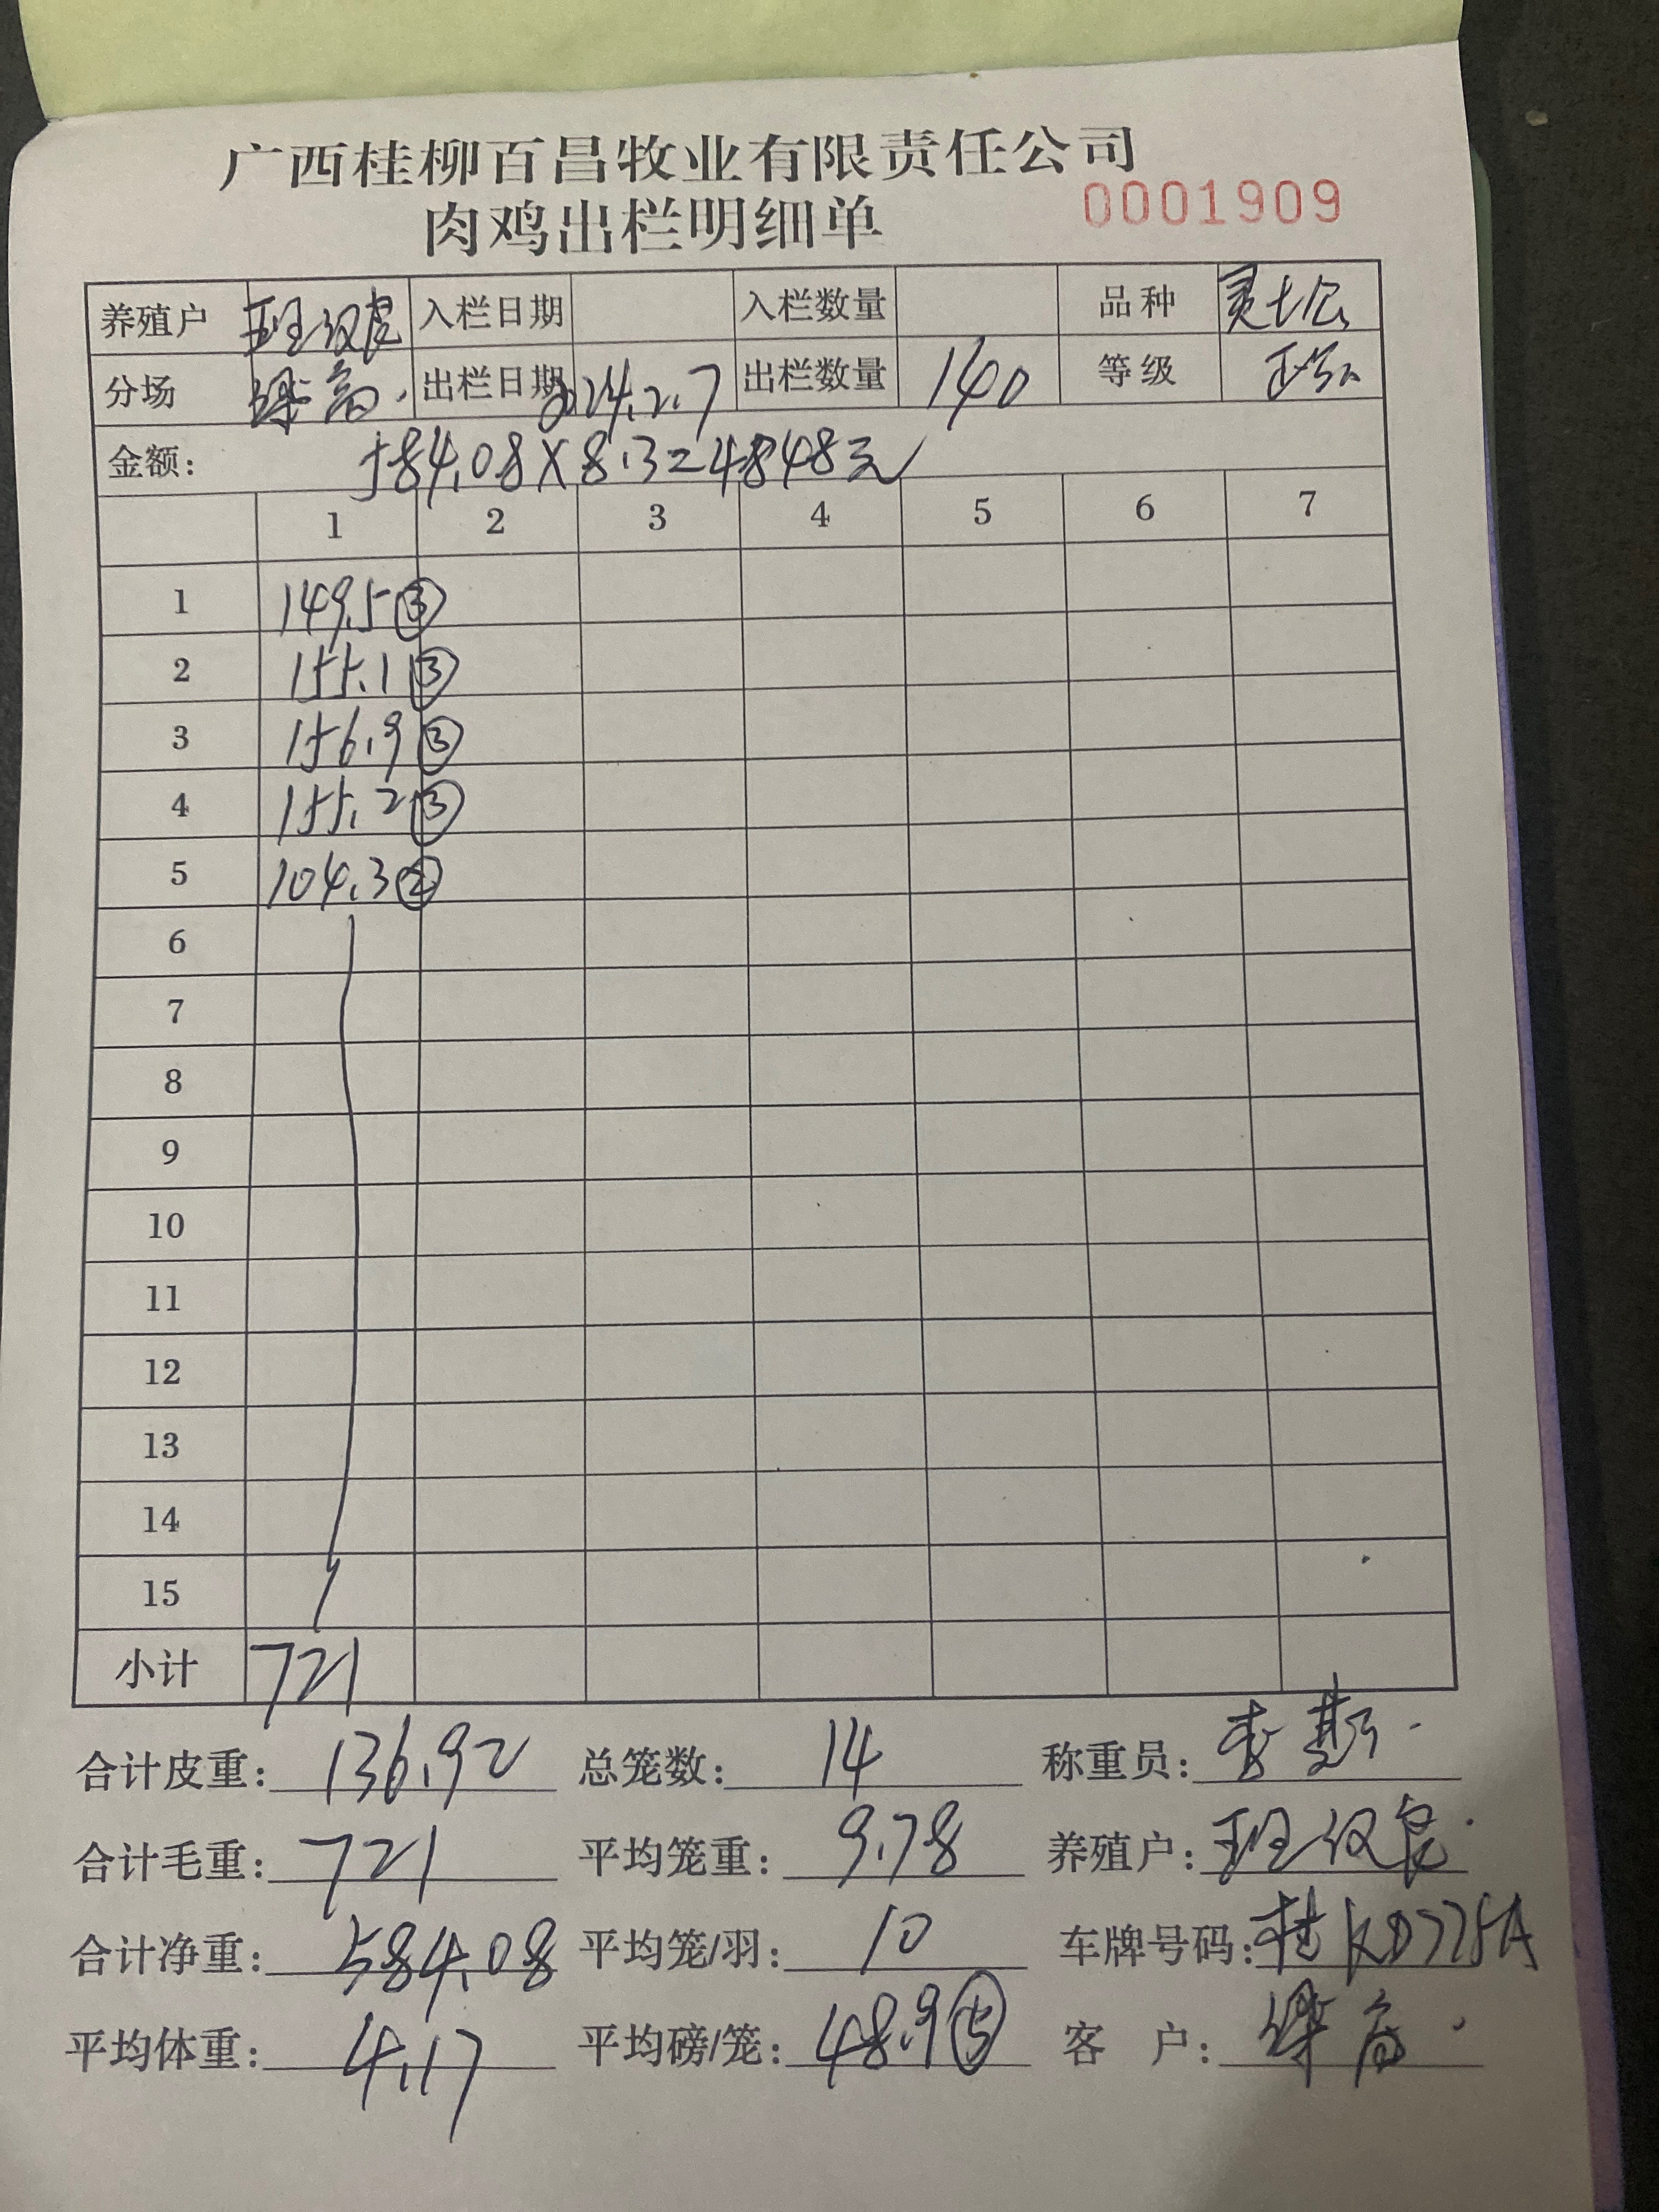 广西桂柳百昌牧业有限责任公司
肉鸡出栏明细单 0001909
养殖户 班汉良 入栏日期 入栏数量 品种 灵土公
分场 梁高. 出栏日期 2024.2.7 出栏数量 140 等级 正品
金额: 584.08×8.3=4848元
1 2 3 4 5 6 7
1 149.5③
2 155.1③
3 156.9③
4 155.2③
5 104.3②
6
7
8
9
10
11
12
13
14
15
小计 721
合计皮重: 136.92 总笼数: 14 称重员: 李
合计毛重: 721 平均笼重: 9.78 养殖户: 班汉良
合计净重: 584.08 平均笼/羽: 10 车牌号码: 桂KD775A
平均体重: 4.17 平均磅/笼: 48.9⑤ 客 户: 梁高.